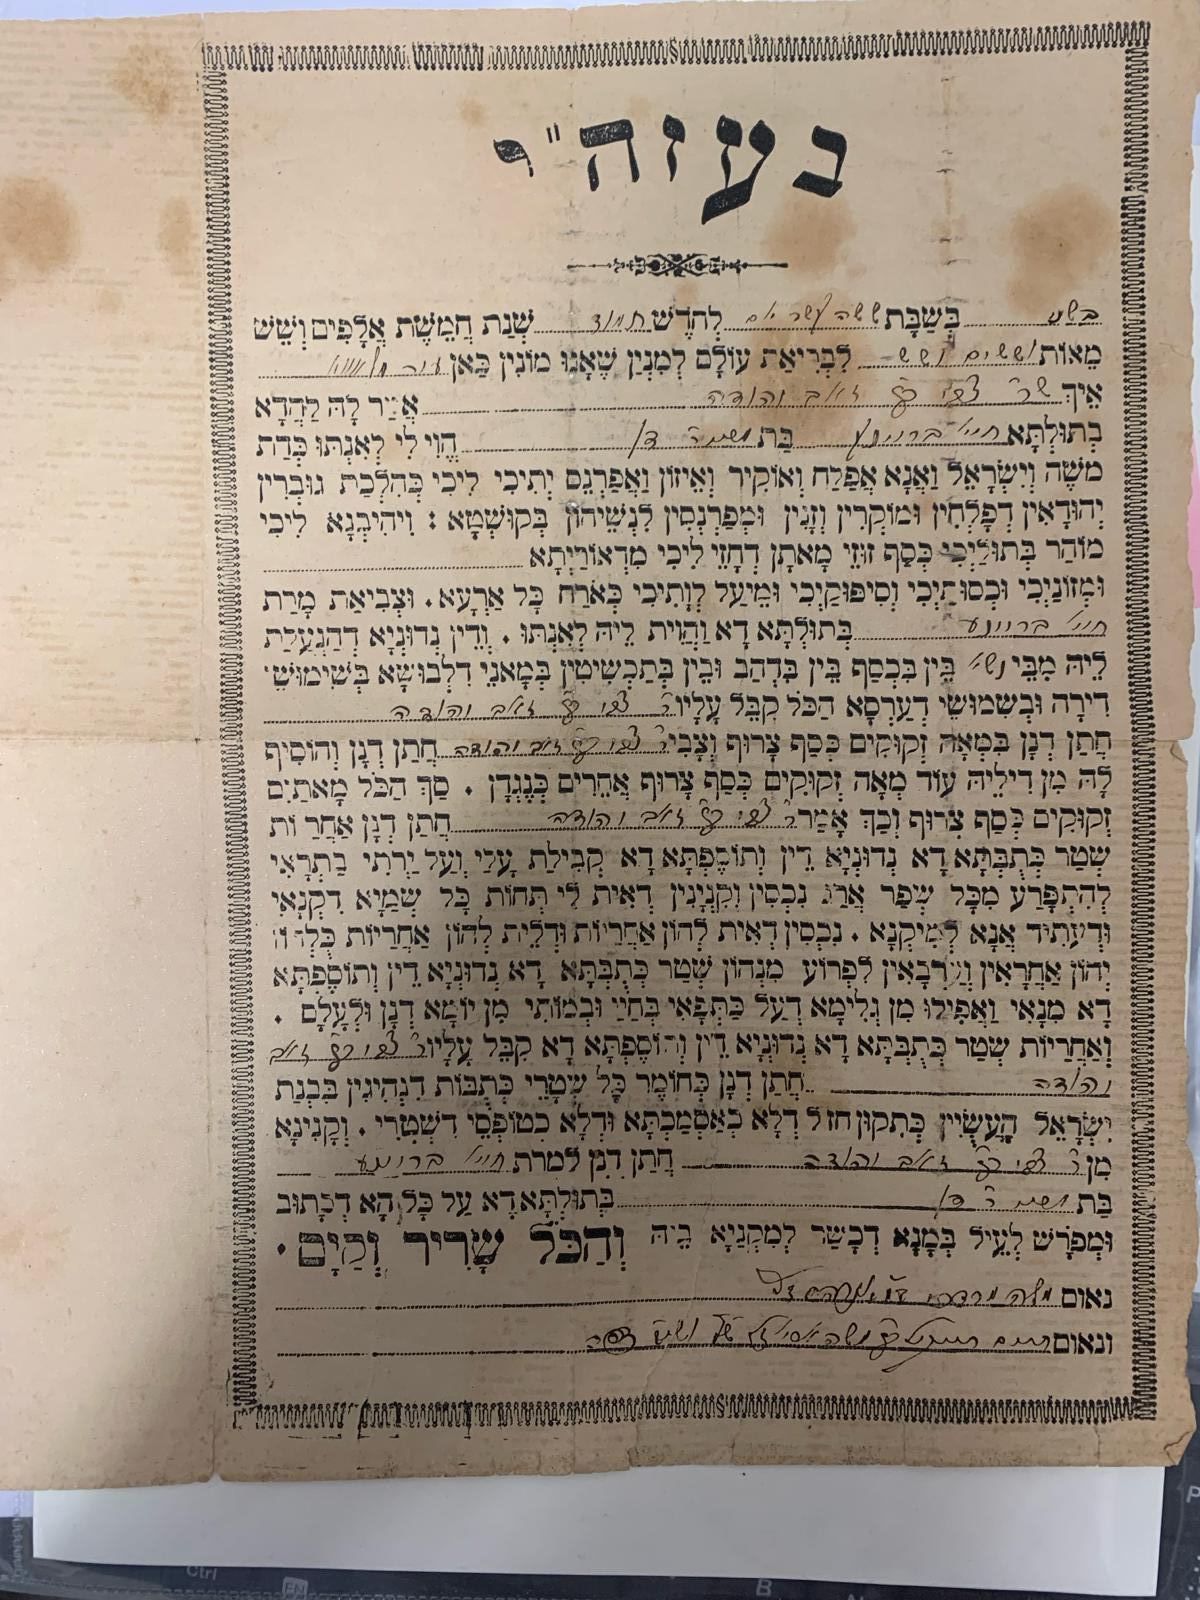 בעזה"י
בשני בשבת ששה עשר יום לחדש תמוז שנת חמשת אלפים ושש
מאות וששים ושש לבריאת עולם למנין שאנו מונין כאן עיר
איך ר' צבי זאב יהודה אמר לה להדא
בתולתא חיי' בת ר' דן הוי לי לאנתו כדת
משה וישראל ואנא אפלח ואוקיר ואיזון ואפרנס יתיכי ליכי כהלכת גוברין
יהודאין דפלחין ומוקרין וזנין ומפרנסין לנשיהון בקושטא : ויהיבנא ליכי
מוהר בתוליכי כסף זוזי מאתן דחזי ליכי מדאורייתא
ומזוניכי וכסותיכי וסיפוקיכי ומיעל לותיכי כארח כל ארעא . וצביאת מרת
חיי' בתולתא דא והוית ליה לאנתו . ודין נדוניא דהנעלת
ליה מבי נשי' בין בכסף בין בדהב ובין בתכשיטין במאני דלבושא בשימושי
דירה ובשמושי דערסא הכל קבל עליו ר' צבי זאב יהודה
חתן דנן במאה זקוקים כסף צרוף וצבי ר' צבי זאב יהודה חתן דנן והוסיף
לה מן דיליה עוד מאה זקוקים כסף צרוף אחרים כנגדן . סך הכל מאתים
זקוקים כסף צרוף וכך אמר ר' צבי זאב יהודה חתן דנן אחריות
שטר כתבתא דא נדוניא דין ותוספתא דא קבילת עלי ועל ירתי בתראי
להתפרע מכל שפר ארג נכסין וקנינין דאית לי תחות כל שמיא דקנאי
ודעתיד אנא למיקנא . נכסין דאית להון אחריות ודלית להון אחריות כלהון
יהון אחראין וערבאין לפרוע מנהון שטר כתבתא דא נדוניא דין ותוספתא
דא מנאי ואפילו מן גלימא דעל כתפאי בחיי ובמותי מן יומא דנן ולעלם .
ואחריות שטר כתבתא דא נדוניא דין ותוספתא דא קבל עליו ר' צבי זאב
יהודה חתן דנן כחומר כל שטרי כתבות דנהיגין בבנת
ישראל העשוין כתקון חזל דלא כאסמכתא ודלא כטופסי דשטרי . וקנינא
מן ר' צבי זאב יהודה חתן דנן למרת חיי'
בת ר' דן בתולתא דא על כל הא דכתוב
ומפרש לעיל במנא דכשר למקניא ביה והכל שריר וקים .
נאום משה מרדכי
ונאום חיים משה